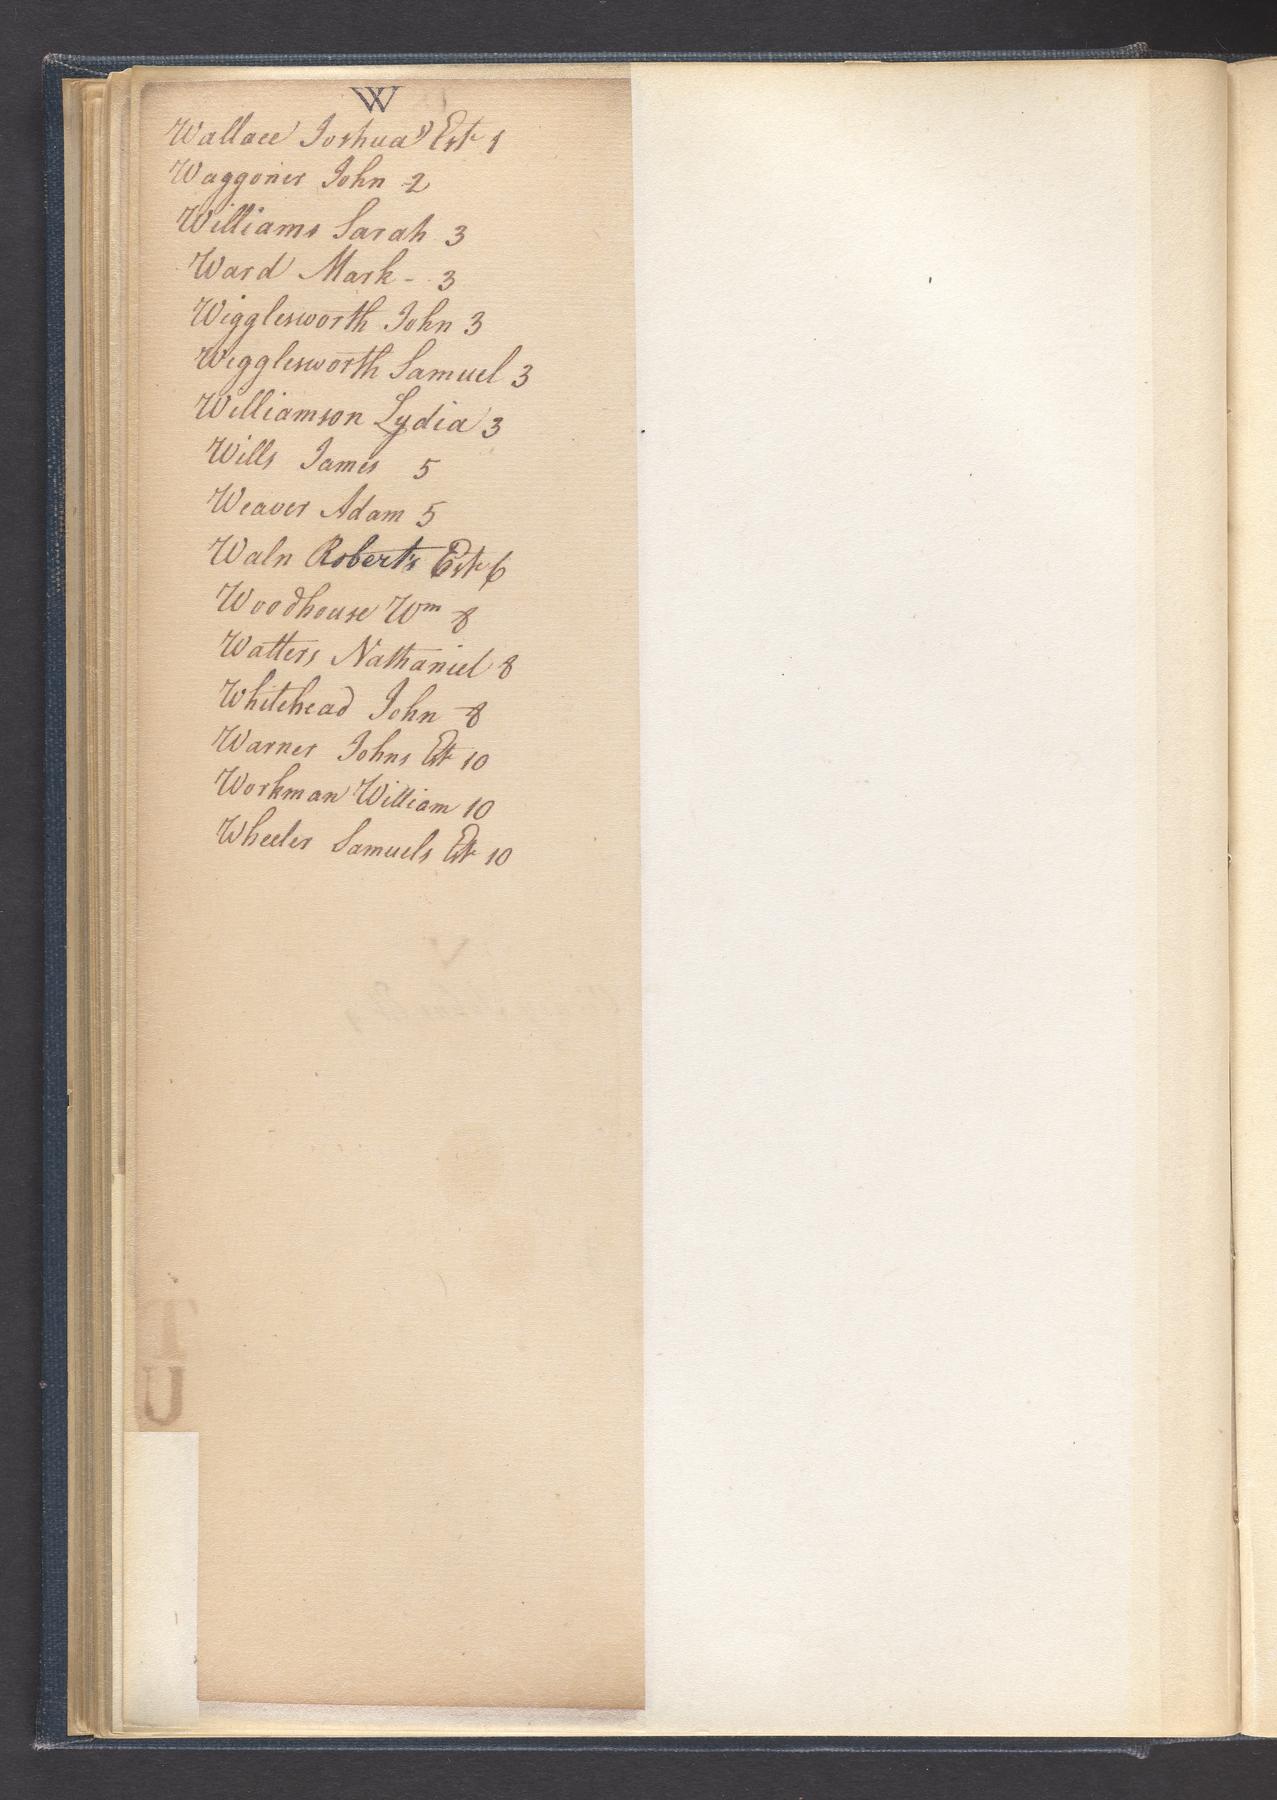 W
Wallace Joshua's Est 1
Waggoner John 2
Williams Sarah 3
Ward Mark - 3
Wigglesworth John 3
Wigglesworth Samuel 3
Williamson Lydia 3
Wills James 5
Weaver Adam 5
Waln Roberts Est 6
Woodhouse Wm 8
Watters Nathaniel 8
Whitehead John 8
Warner Johns Est 10
Workman William 10
Wheeler Samuels Est 10
T
U